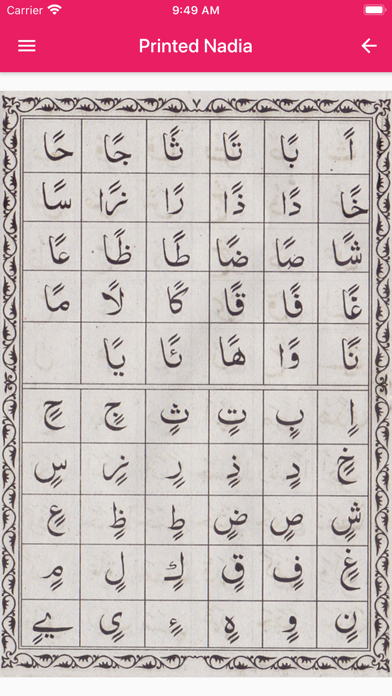 Carrier 9:49 AM
Printed Nadia
٧
اً بًا تًا ثًا جًا حًا
خًا دًا ذًا رًا زًا سًا
شًا صًا ضًا طًا ظًا عًا
غًا فًا قًا كًا لًا مًا
نًا وًا هًا ئًا يًا
اٍ بٍ تٍ ثٍ جٍ حٍ
خٍ دٍ ذٍ رٍ زٍ سٍ
شٍ صٍ ضٍ طٍ ظٍ عٍ
غٍ فٍ قٍ كٍ لٍ مٍ
نٍ وٍ هٍ ءٍ يٍ ےٍ